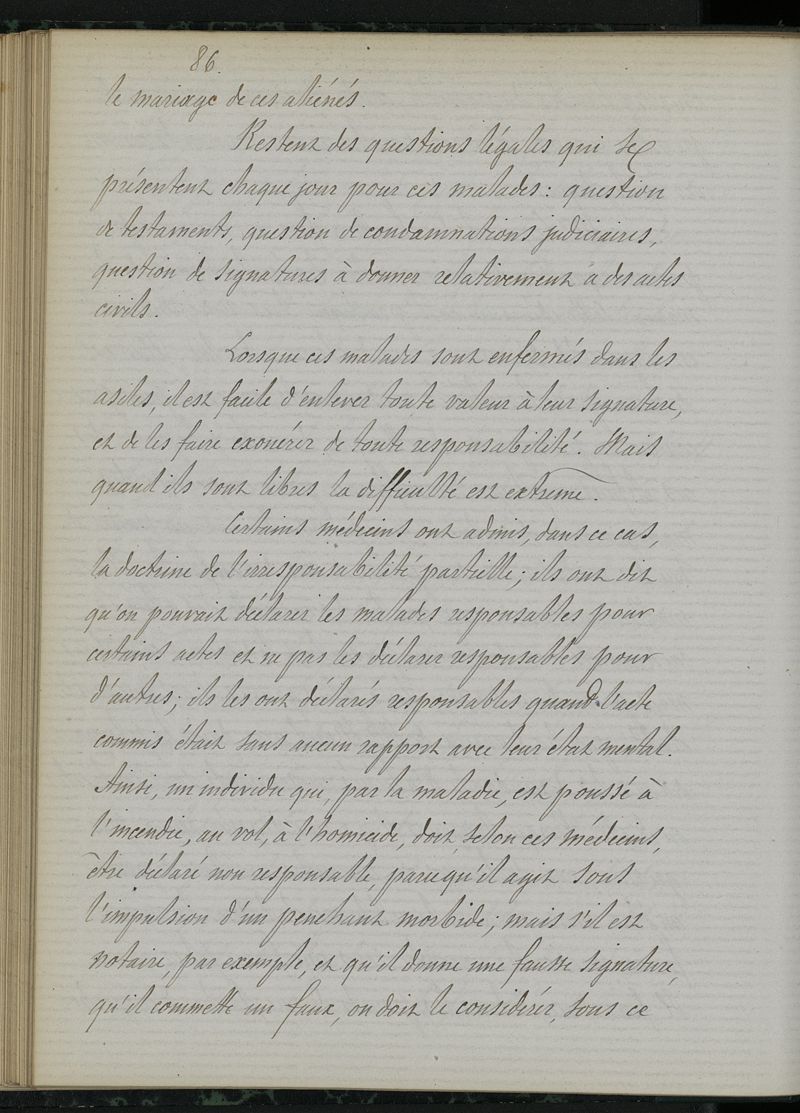 86.
le mariage de ces aliénés.
Restent des questions légales qui se
présentent chaque jour pour ces malades : question
de testaments, question de condamnations judiciaires,
question de signatures à donner relativement a des actes
civils.
Lorsque ces malades sont enfermés dans les
asiles, il est facile d'enlever toute valeur à leur signature,
et de les faire exonérer de toute responsabilité. Mais
quand ils sont libres la difficulté est extrême.
Certains médecins ont admis, dans ce cas,
la doctrine de l'irresponsabilité partielle ; ils ont dit
qu'on pouvait déclarer les malades responsables pour
certains actes et ne pas les déclarer responsables pour
d'autres ; ils les ont déclarés responsables quand l'acte
commis était sans aucun rapport avec leur état mental.
Ainsi, un individu qui, par la maladie, est poussé à
l'incendie, au vol, à l'homicide, doit, selon ces médecins,
être déclaré non responsable, parce qu'il agit sous
l'impulsion d'un penchant morbide ; mais s'il est
notaire, par exemple, et qu'il donne une fausse signature,
qu'il commette un faux, on doit le considérer, sous ce